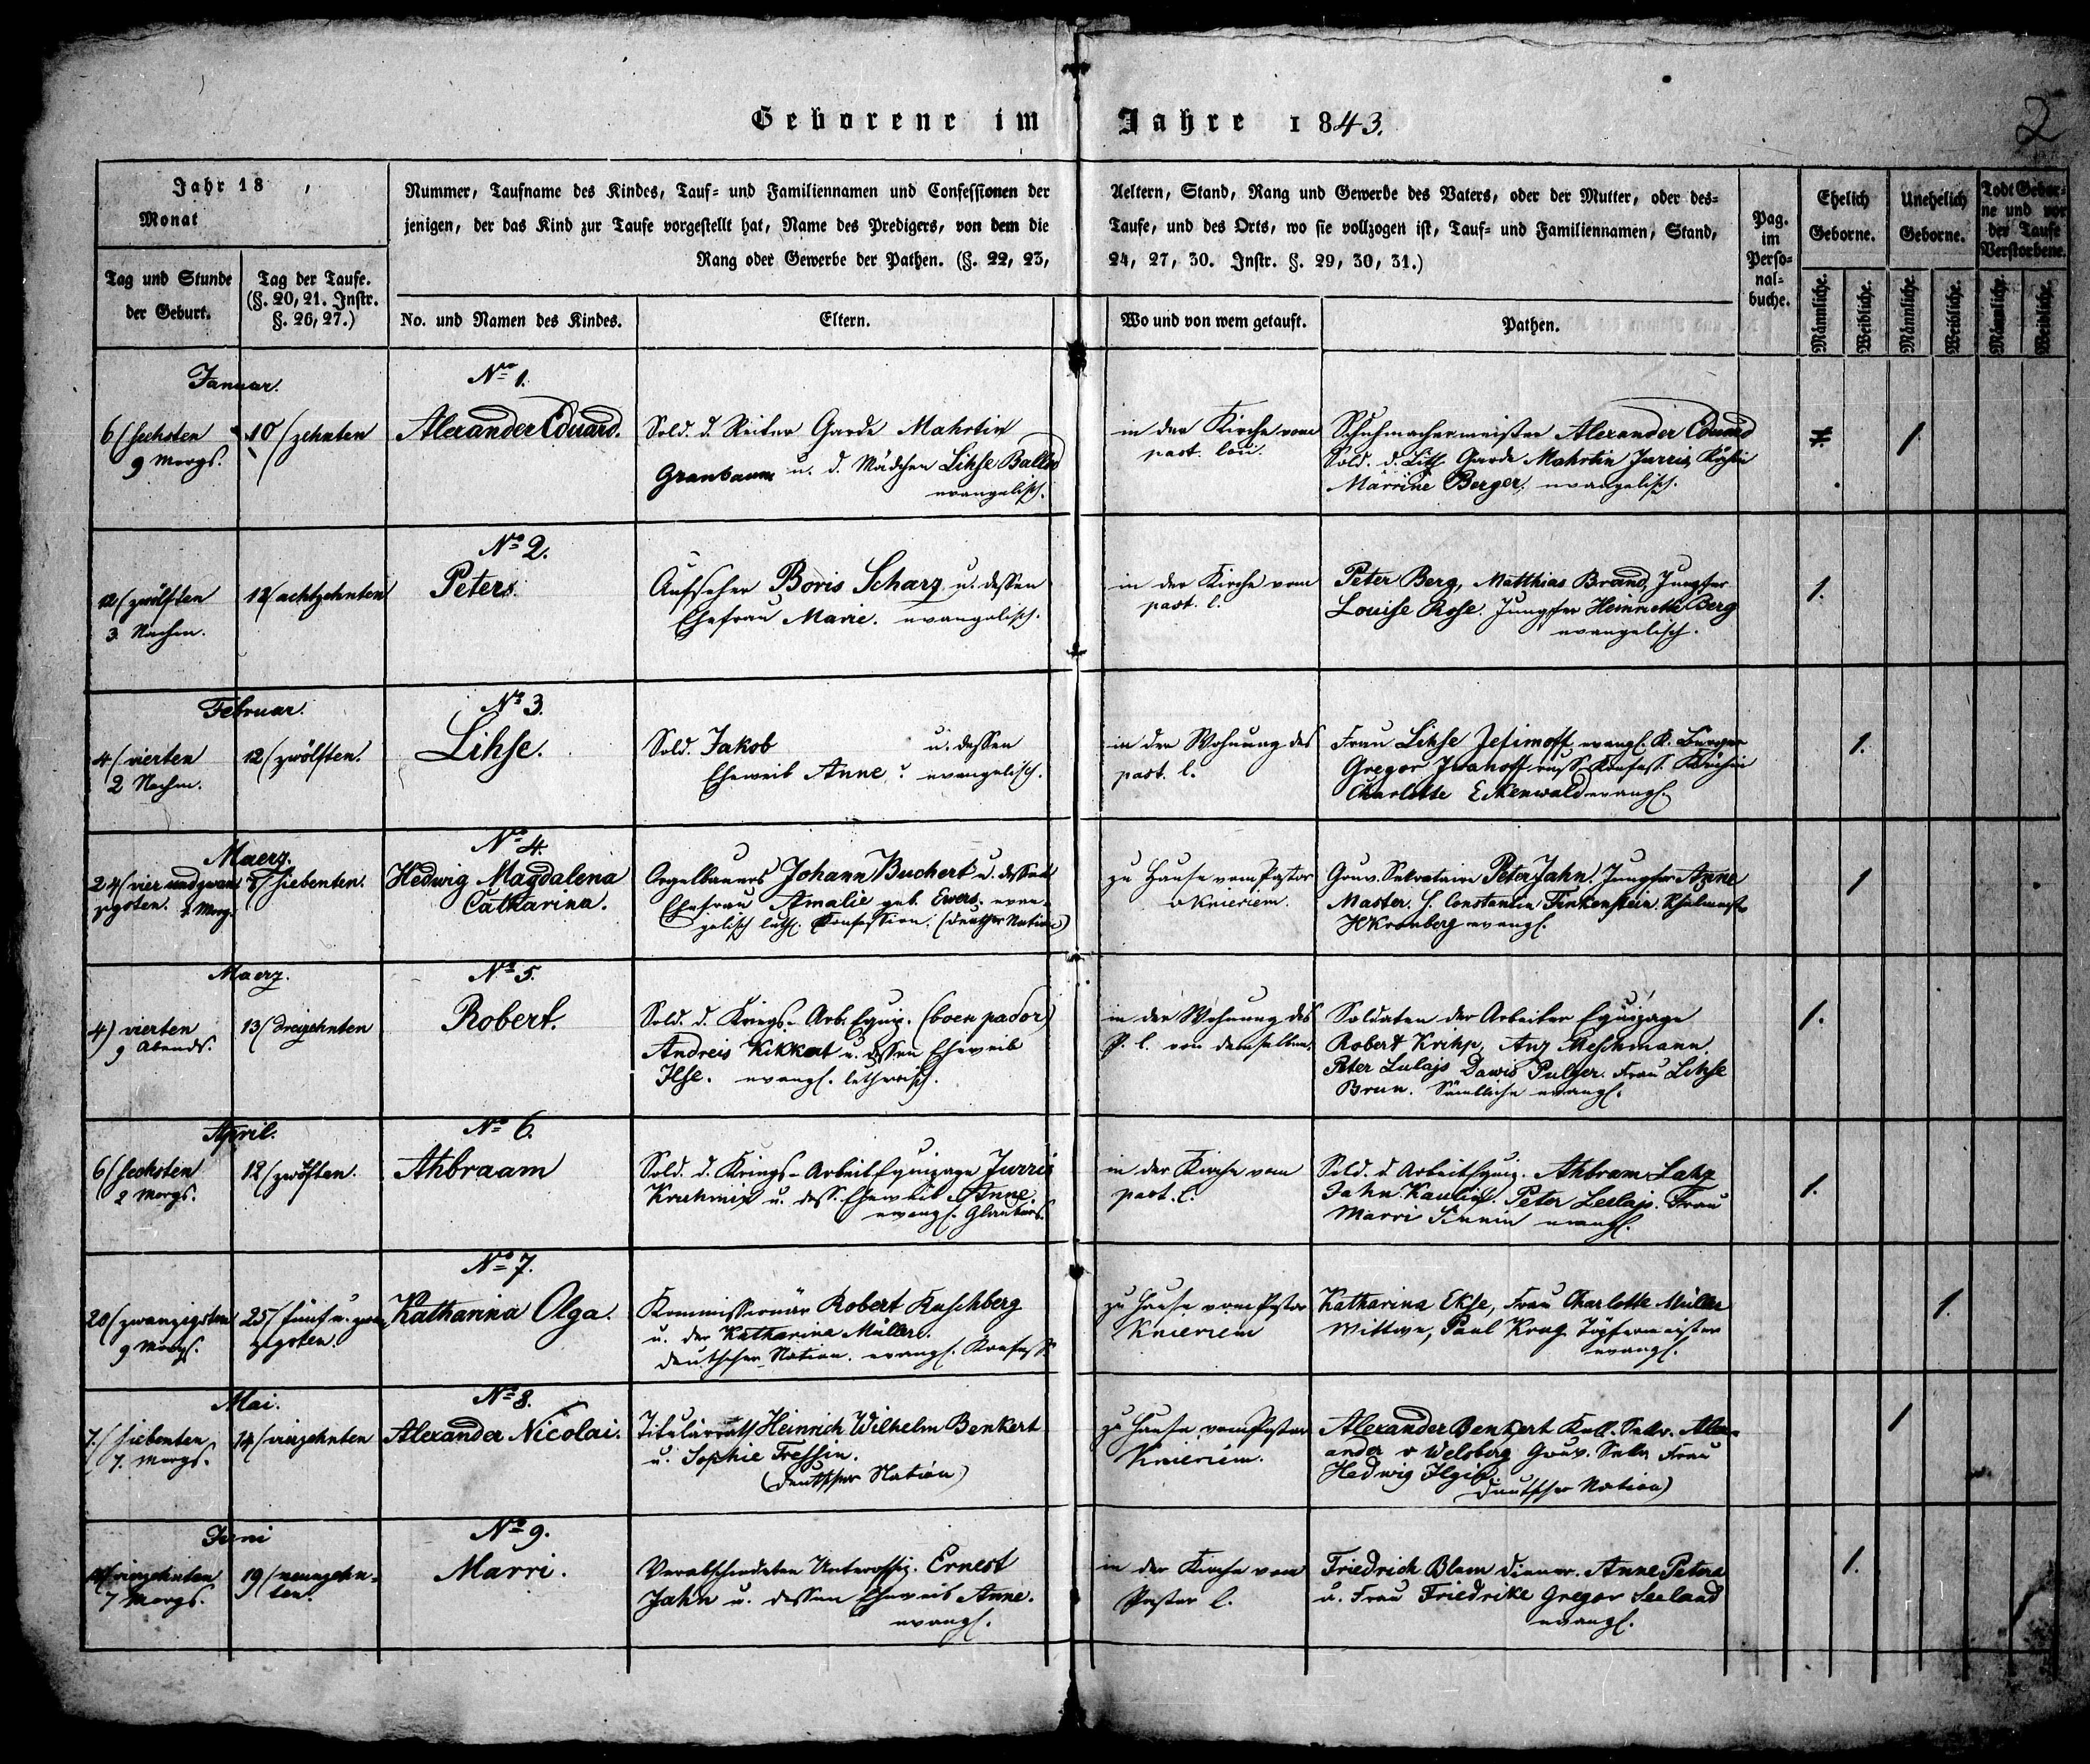 2
Geborene im Jahre 1843.
Jahr 18 ,
Monat
Tag und Stunde
der Geburt.
Tag der Taufe.
(§. 20, 21. Instr.
§. 26, 27.)
Nummer, Taufname des Kindes, Tauf- und Familiennamen und Confessionen der
jenigen, der das Kind zur Taufe vorgestellt hat, Name des Predigers, von dem die
Rang oder Gewerbe der Pathen. (§. 22, 23,
No. und Namen des Kindes.
Eltern.
Aeltern, Stand, Rang und Gewerbe des Vaters, oder der Mutter, oder des-
Taufe, und des Orts, wo sie vollzogen ist, Tauf- und Familiennamen, Stand,
24, 27, 30. Instr. §. 29, 30, 31.)
Wo und von wem getauft.
Pathen.
Pag.
im
Perso-
nal-
buche.
Ehelich
Geborne.
Unehelich
Geborne.
Todt Gebor-
ne und vor
der Taufe
Verstorbene.
Männliche.
Weibliche.
Männliche.
Weibliche.
Männliche.
Weibliche.
Januar.
No 1.
6 (sechsten
9 Morgs.
10 (zehnten
Alexander Eduard.
Sold. d. Reiter Garde Mahrtin
Granbaum u. d. Mädchen Lihse Ballod
evangelisch.
in der Kirche vom
past. loci.
Schuhmachermeister Alexander Eduard
Sold. d. Garde Mahrtin Jurris
Marrine Berger, evangelisch.
1
No 2.
12 (zwölften
3 Nachm.
18 (achtzehnten
Peters.
Aufseher Boris Scharz u. dessen
Ehefrau Marie. evangelisch.
in der Kirche vom
past. l.
Peter Berg, Matthias Brand, Jungfer
Louise Rose. Jungfer Heinriette Berg
evangelisch.
1.
Februar.
No 3.
4 (vierten
2 Nachm.
12 (zwölften.
Lihse.
Sold. Jakob u. dessen
Eheweib Anne. evangelisch.
in der Wohnung des
past. l.
Frau Lihse Jefimoff evangl.
Gregor Iwanoff russ. Confess.
Charlotte Eckenwald evangl.
1.
Maerz.
No 4.
24 (vier und zwan-
zigsten. Morg.
7 (siebenten.
Hedwig Magdalena
Catharina.
Orgelbauers Johann Buchert u. dessen
Ehefrau Amalie geb. Ewers. evan-
gelisch luth. Confession. (deutscher Nation)
zu Hause vom Pastor
v Knieriem.
Gouv. Sekretaire Peter Jahn. Jungfer Anne
Master. H. Constantin Finkenstein.
H Kronberg evangl.
1
Maerz.
No 5.
4) vierten
9 Abends.
13 (dreizehnten
Robert.
Sold. d. Kriegs-Arb. Equip.
Andreis Kikkat u. dessen Eheweib
Ilse. evangl. lutherisch.
in der Wohnung des
P. l. von demselben.
Soldaten der Arbeiter Equipage
Robert Krihp, Anz Meschmann
Peter Lulajs Dawid Pulger. Frau Lihse
Brun. Sämtliche evangl.
1.
April.
No 6.
6 (sechsten
2 Morgs.
12 (zwölften.
Ahbraam
Sold. d. Kriegs-Arbeit Equipage Jurris
Kruhmin u. dess. Eheweib Anne.
evangl. Glaubens.
in der Kirche vom
past. l.
Sold. d. Arbeit Equip. Ahbram Lahz
Jahn Kaulin. Peter Leelajs. Frau
Marri evangl.
1.
No 7.
20 (zwanzigsten
9 Morgs.
25 (fünf u. zwan-
zigsten.
Katharina Olga.
Kommissionär Robert Kuschberg
u. der Katharina Müller.
deutscher Nation. evangl. Konfess.
zu Hause vom Pastor
Knieriem
Katharina Ekse, Frau Charlotte Müller
Wittwe, Paul Krug Töpfermeister
evangl.
1.
Mai.
No 8.
7. (siebenten
7. Morgs.
14 (vierzehnten
Alexander Nicolai.
Titulärrath Heinrich Wilhelm Benkert
u. Sophie Fressin.
(deutscher Nation)
zu Hause vom Pastor
Knieriem.
Alexander Benkert Koll. Sekr. Alex-
ander v Welsberg Gouv. Sekr. Frau
Hedwig Ilgin
deutscher Nation)
1
Juni
No 9.
14 (vierzehnten
7 Morgs.
19 (neunzehn-
ten.
Marri.
Verabschiedeten Unteroffiz. Ernest
Jahn u. dessen Eheweib Anne.
evangl.
in der Kirche vom
Pastor l.
Friedrich Blum Diener. Anne Peters
u. Frau Friedrike Gregor Seeland
evangl.
1.